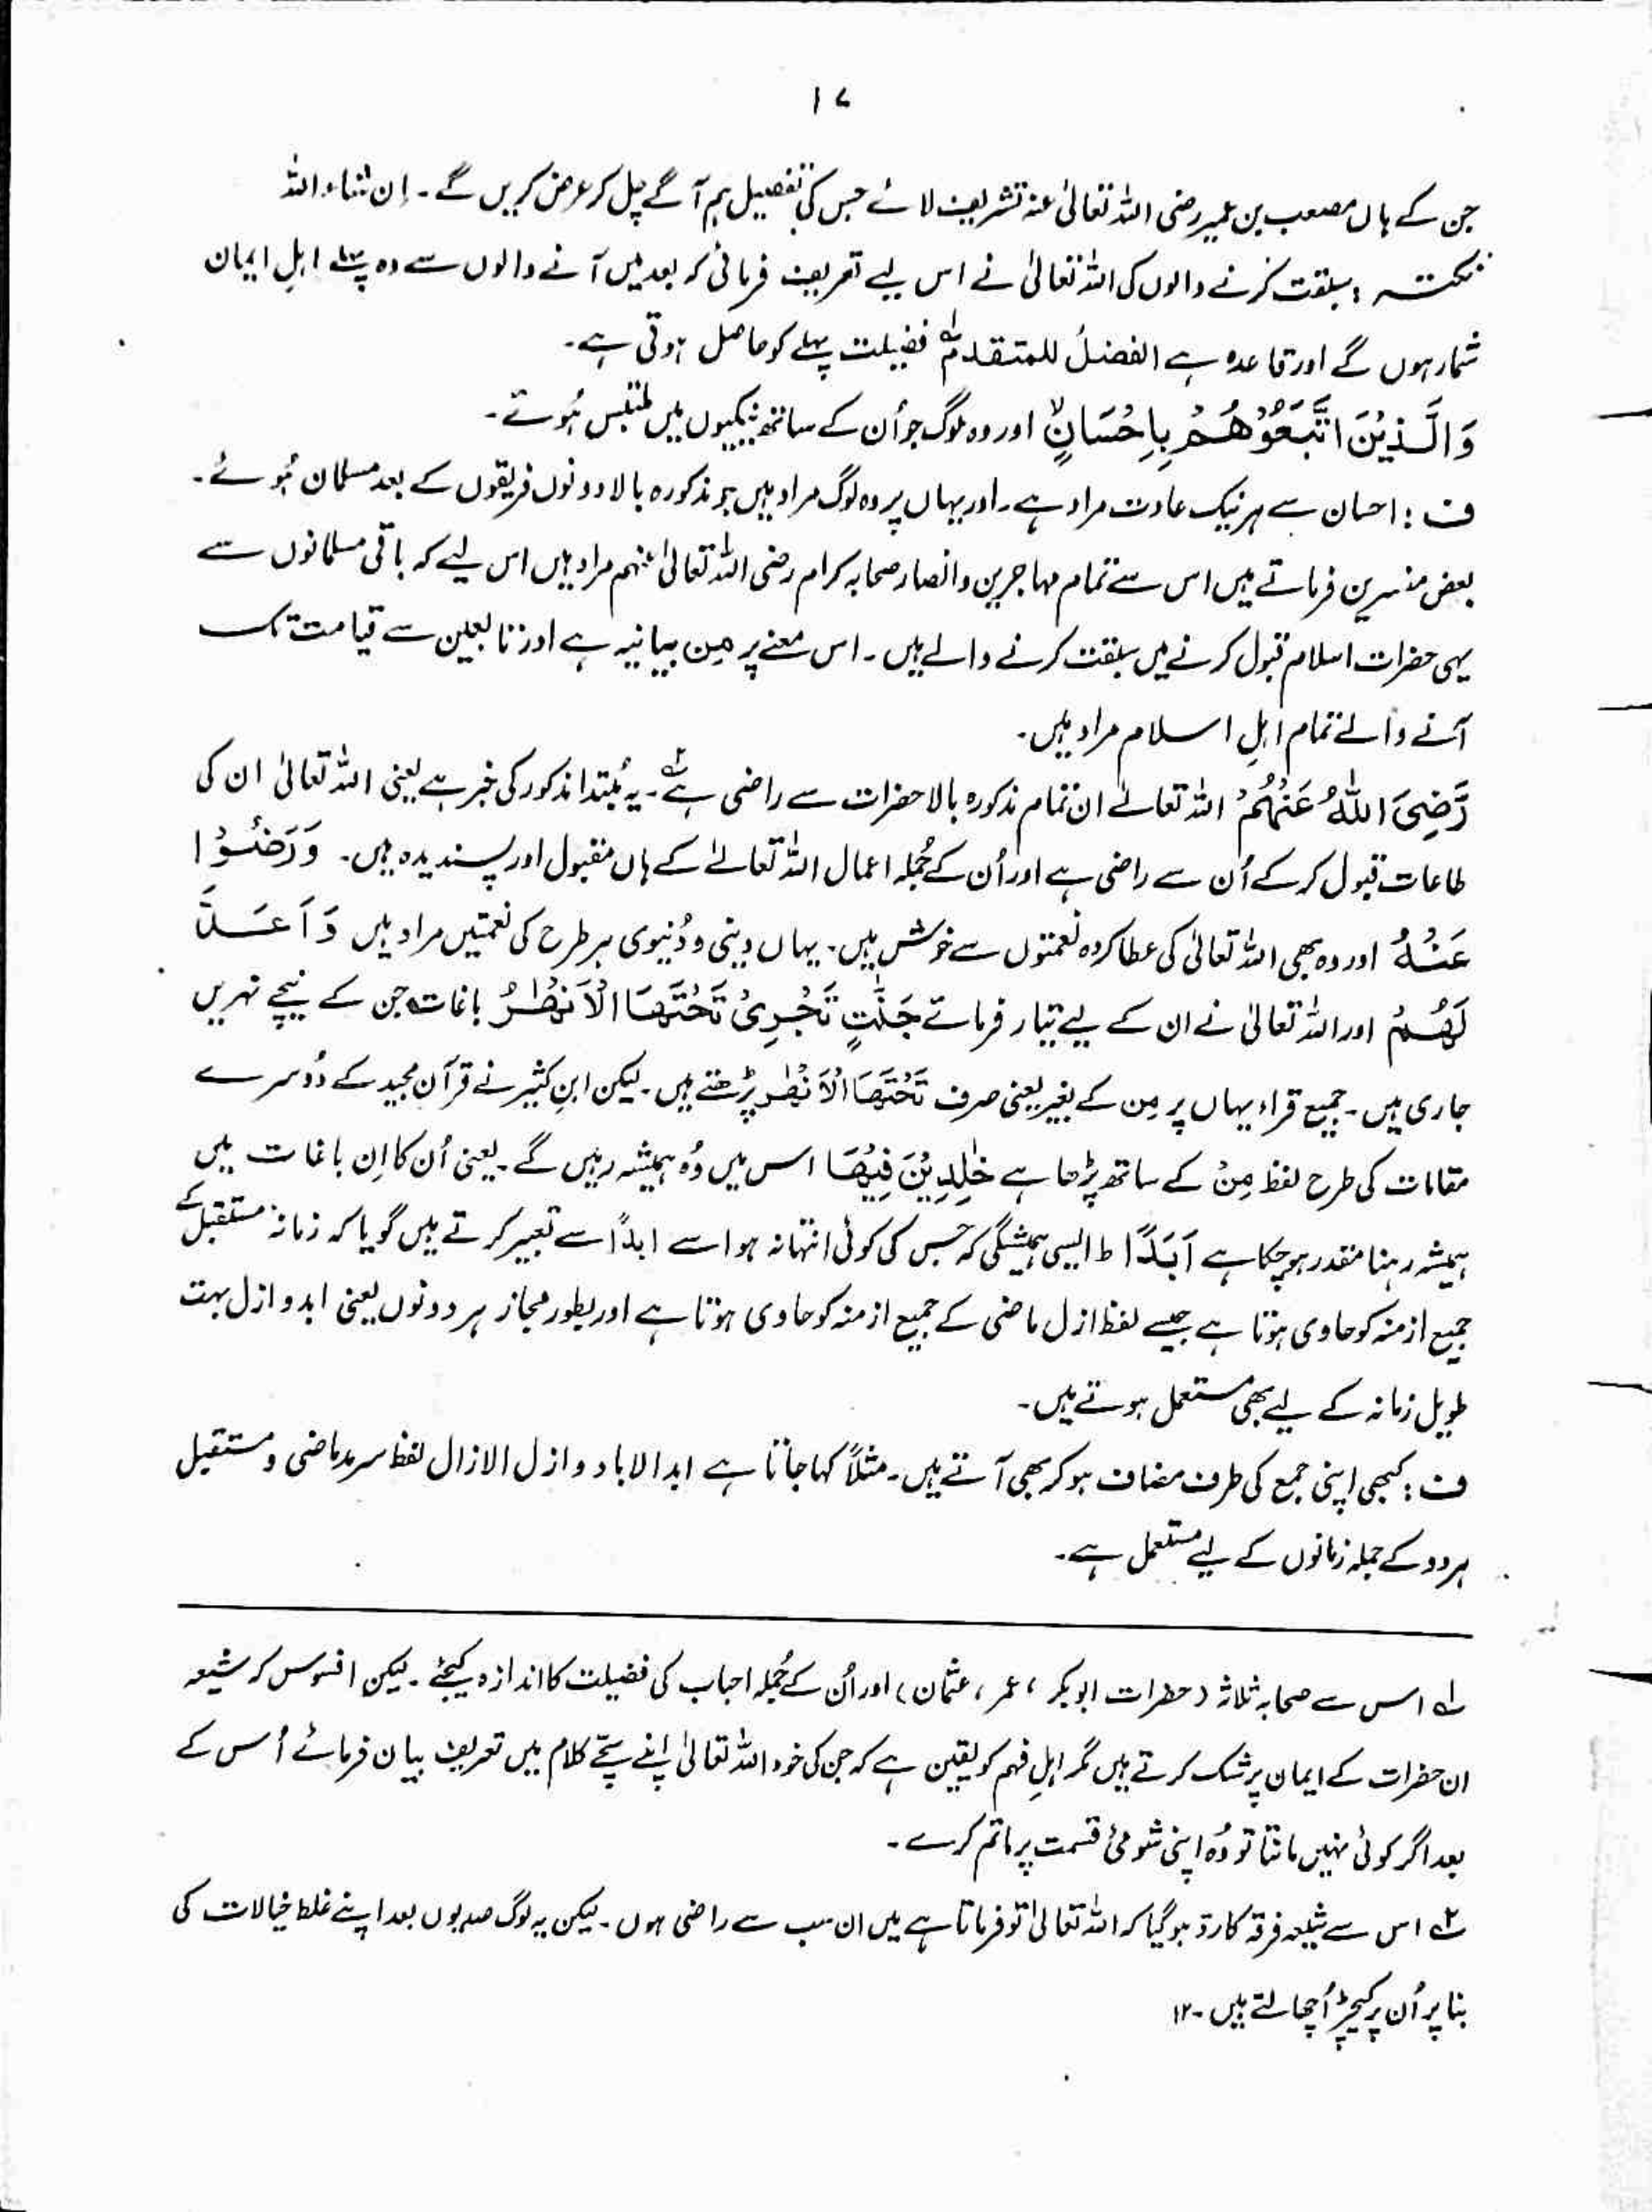 ۱۷
جن کے ہاں مصعب بن عمیر رضی اللہ تعالیٰ عنہ تشریف لائے جس کی تفصیل ہم آگے چل کر عرض کریں گے۔ اِن شاء اللہ
نکتہ : سبقت کرنے والوں کی اللہ تعالیٰ نے اس لیے تعریف فرمائی کہ بعد میں آنے والوں سے وہ پہلے اہلِ ایمان
شمار ہوں گے اور قاعدہ ہے الفضلُ للمتقدمِ لہ فضیلت پہلے کو حاصل ہوتی ہے۔
وَالَّذِیْنَ اتَّبَعُوْهُمْ بِاِحْسَانٍ ۙ اور وہ لوگ جو اُن کے ساتھ نیکیوں میں ملتبس ہُوتے۔
ف : احسان سے ہر نیک عادت مراد ہے۔ اور یہاں پر وہ لوگ مراد ہیں جو مذکورہ بالا دونوں فریقوں کے بعد مسلمان ہُوئے۔
بعض مفسرین فرماتے ہیں اس سے تمام مہاجرین و انصار صحابہ کرام رضی اللہ تعالیٰ عنہم مراد ہیں اس لیے کہ باقی مسلمانوں سے
یہی حضرات اسلام قبول کرنے میں سبقت کرنے والے ہیں۔ اس معنے پر مِن بیانیہ ہے اور تابعین سے قیامت تک
آنے والے تمام اہلِ اسلام مراد ہیں۔
رَّضِیَ اللّٰہُ عَنْہُمْ اللہ تعالےٰ ان تمام مذکورہ بالا حضرات سے راضی ہے ۲؎۔ یہ مُبتدا مذکور کی خبر ہے یعنی اللہ تعالیٰ ان کی
طاعات قبول کرکے اُن سے راضی ہے اور اُن کے جُملہ اعمال اللہ تعالےٰ کے ہاں مقبول اور پسندیدہ ہیں۔ وَرَضُوْا
عَنْہُ اور وہ بھی اللہ تعالیٰ کی عطا کردہ نعمتوں سے خوش ہیں۔ یہاں دینی و دُنیوی ہر طرح کی نعمتیں مراد ہیں وَاَعَدَّ
لَهُمْ اور اللہ تعالیٰ نے ان کے لیے تیار فرماتے جَنّٰتٍ تَجْرِیْ تَحْتَهَا الْاَنْهٰرُ باغات جن کے نیچے نہریں
جاری ہیں۔ جمیع قراء یہاں پر مِن کے بغیر یعنی صرف تَحْتَهَا الْاَنْهٰر پڑھتے ہیں۔ لیکن ابنِ کثیر نے قرآن مجید کے دُوسرے
مقامات کی طرح لفظ مِنْ کے ساتھ پڑھا ہے خٰلِدِیْنَ فِیْهَا اس میں وُہ ہمیشہ رہیں گے۔ یعنی اُن کا اِن باغات میں
ہمیشہ رہنا مقدر ہوچکا ہے اَبَدًا ط ایسی ہمیشگی کہ جس کی کوئی انتہا نہ ہو اسے ابدًا سے تعبیر کرتے ہیں گویا کہ زمانہ مستقبل کے
جمیع ازمنہ کو حاوی ہوتا ہے جیسے لفظ ازل ماضی کے جمیع ازمنہ کو حاوی ہوتا ہے اور بطور مجاز ہر دونوں یعنی ابد و ازل بہت
طویل زمانہ کے لیے بھی مستعمل ہوتے ہیں۔
ف : کبھی اپنی جمع کی طرف مضاف ہوکر بھی آتے ہیں۔ مثلاً کہا جاتا ہے ابد الاباد و ازل الازال لفظ سرمد ماضی و مستقبل
ہر دو کے جملہ زمانوں کے لیے مستعمل ہے۔
۱؎ اس سے صحابہ ثلاثہ (حضرات ابوبکر ، عمر ، عثمان) اور اُن کے جُملہ احباب کی فضیلت کا اندازہ کیجئے۔ لیکن افسوس کہ شیعہ
ان حضرات کے ایمان پر شک کرتے ہیں مگر اہلِ فہم کو یقین ہے کہ جن کی خود اللہ تعالیٰ اپنے سچّے کلام میں تعریف بیان فرمائے اُس کے
بعد اگر کوئی نہیں مانتا تو وُہ اپنی شومئ قسمت پر ماتم کرے۔
۲؎ اس سے شیعہ فرقہ کا رد ہوگیا کہ اللہ تعالیٰ تو فرماتا ہے میں ان سب سے راضی ہوں۔ لیکن یہ لوگ صدیوں بعد اپنے غلط خیالات کی
بنا پر اُن پر کیچڑ اُچھالتے ہیں۔ ۱۲